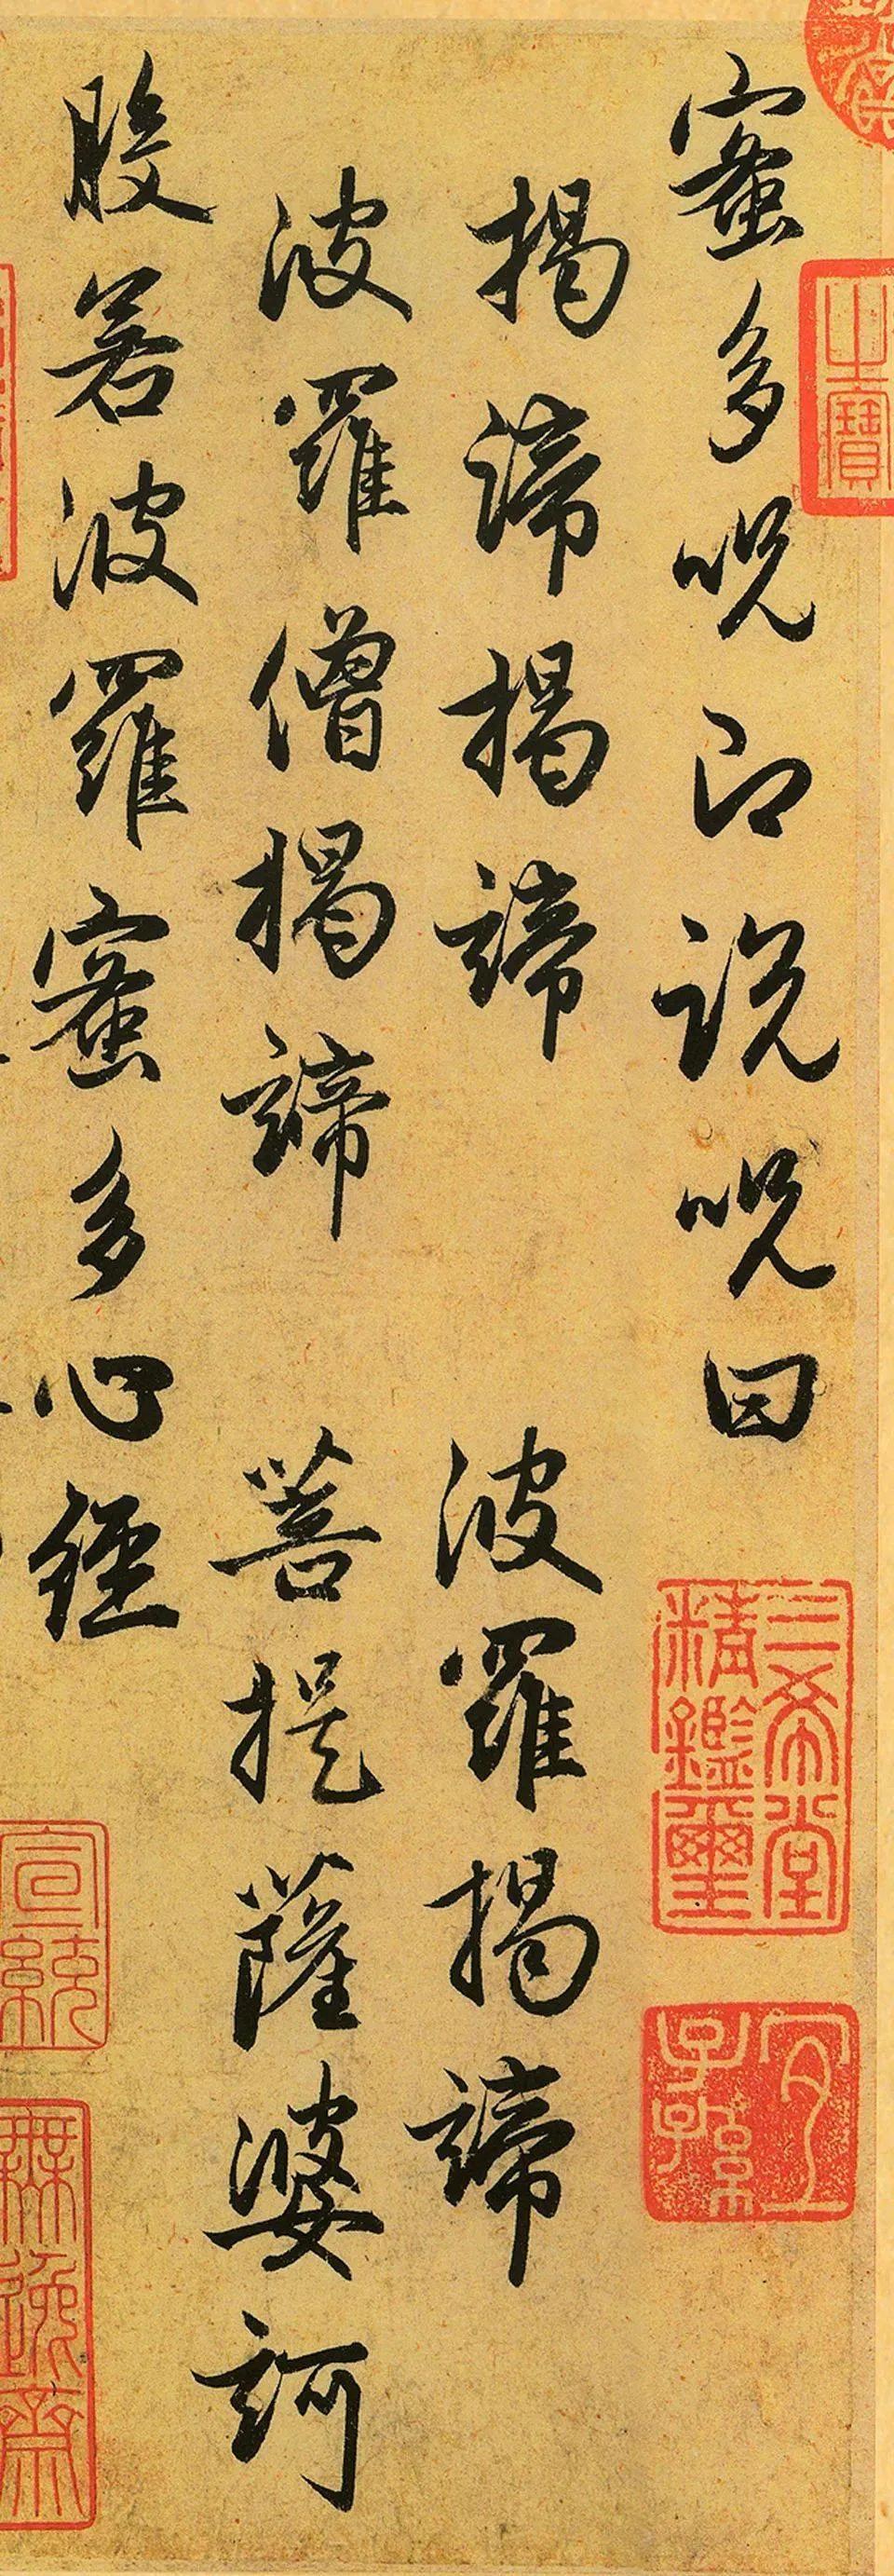 蜜多呪即說呪曰
揭諦揭諦 波羅揭諦
波羅僧揭諦 菩提薩婆訶
般若波羅蜜多心經
之寶
三希堂
精鑑璽
宜
子孫
宣統
無逸齋